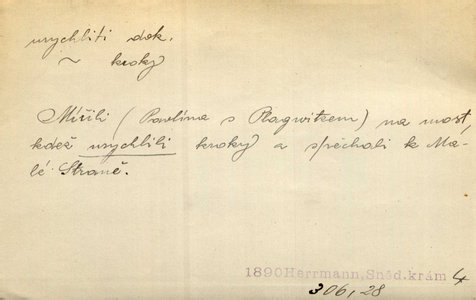 urychliti dok.
~ kroky
Mířili (Pavlína s Wagwitzem) na most,
kdež urychlili kroky a spěchali k Ma-
lé Straně.
1890Herrmann,Sněd.krám 4
306,28